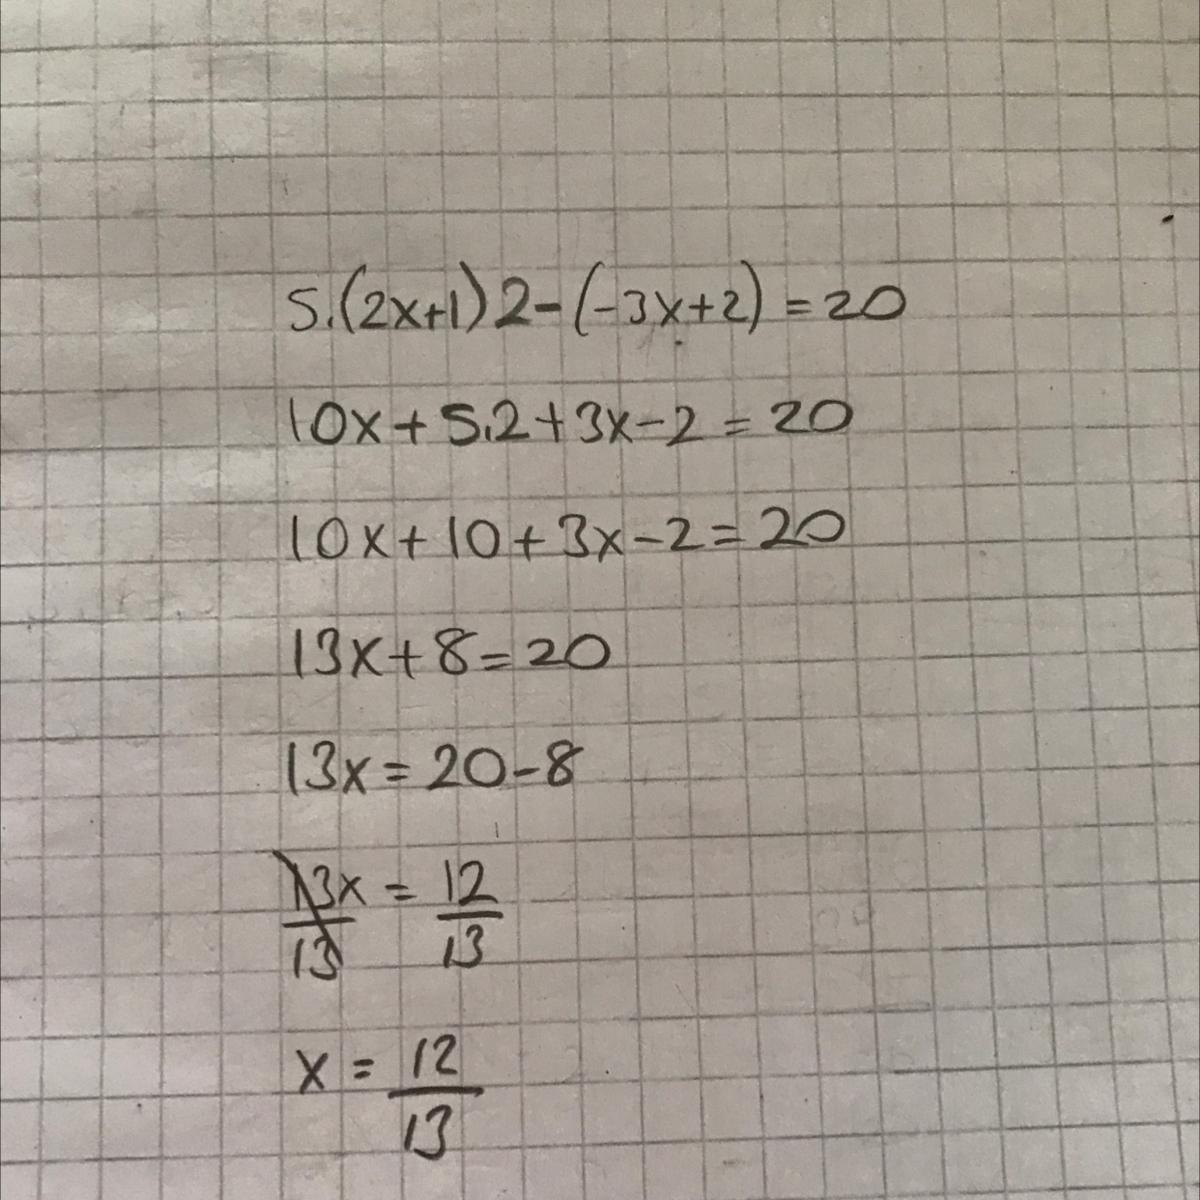 5.(2x+1)2-(-3x+2)=20
10x+5.2+3x-2=20
10x+10+3x-2=20
13x+8=20
13x=20-8
13x/13=12/13
x=12/13